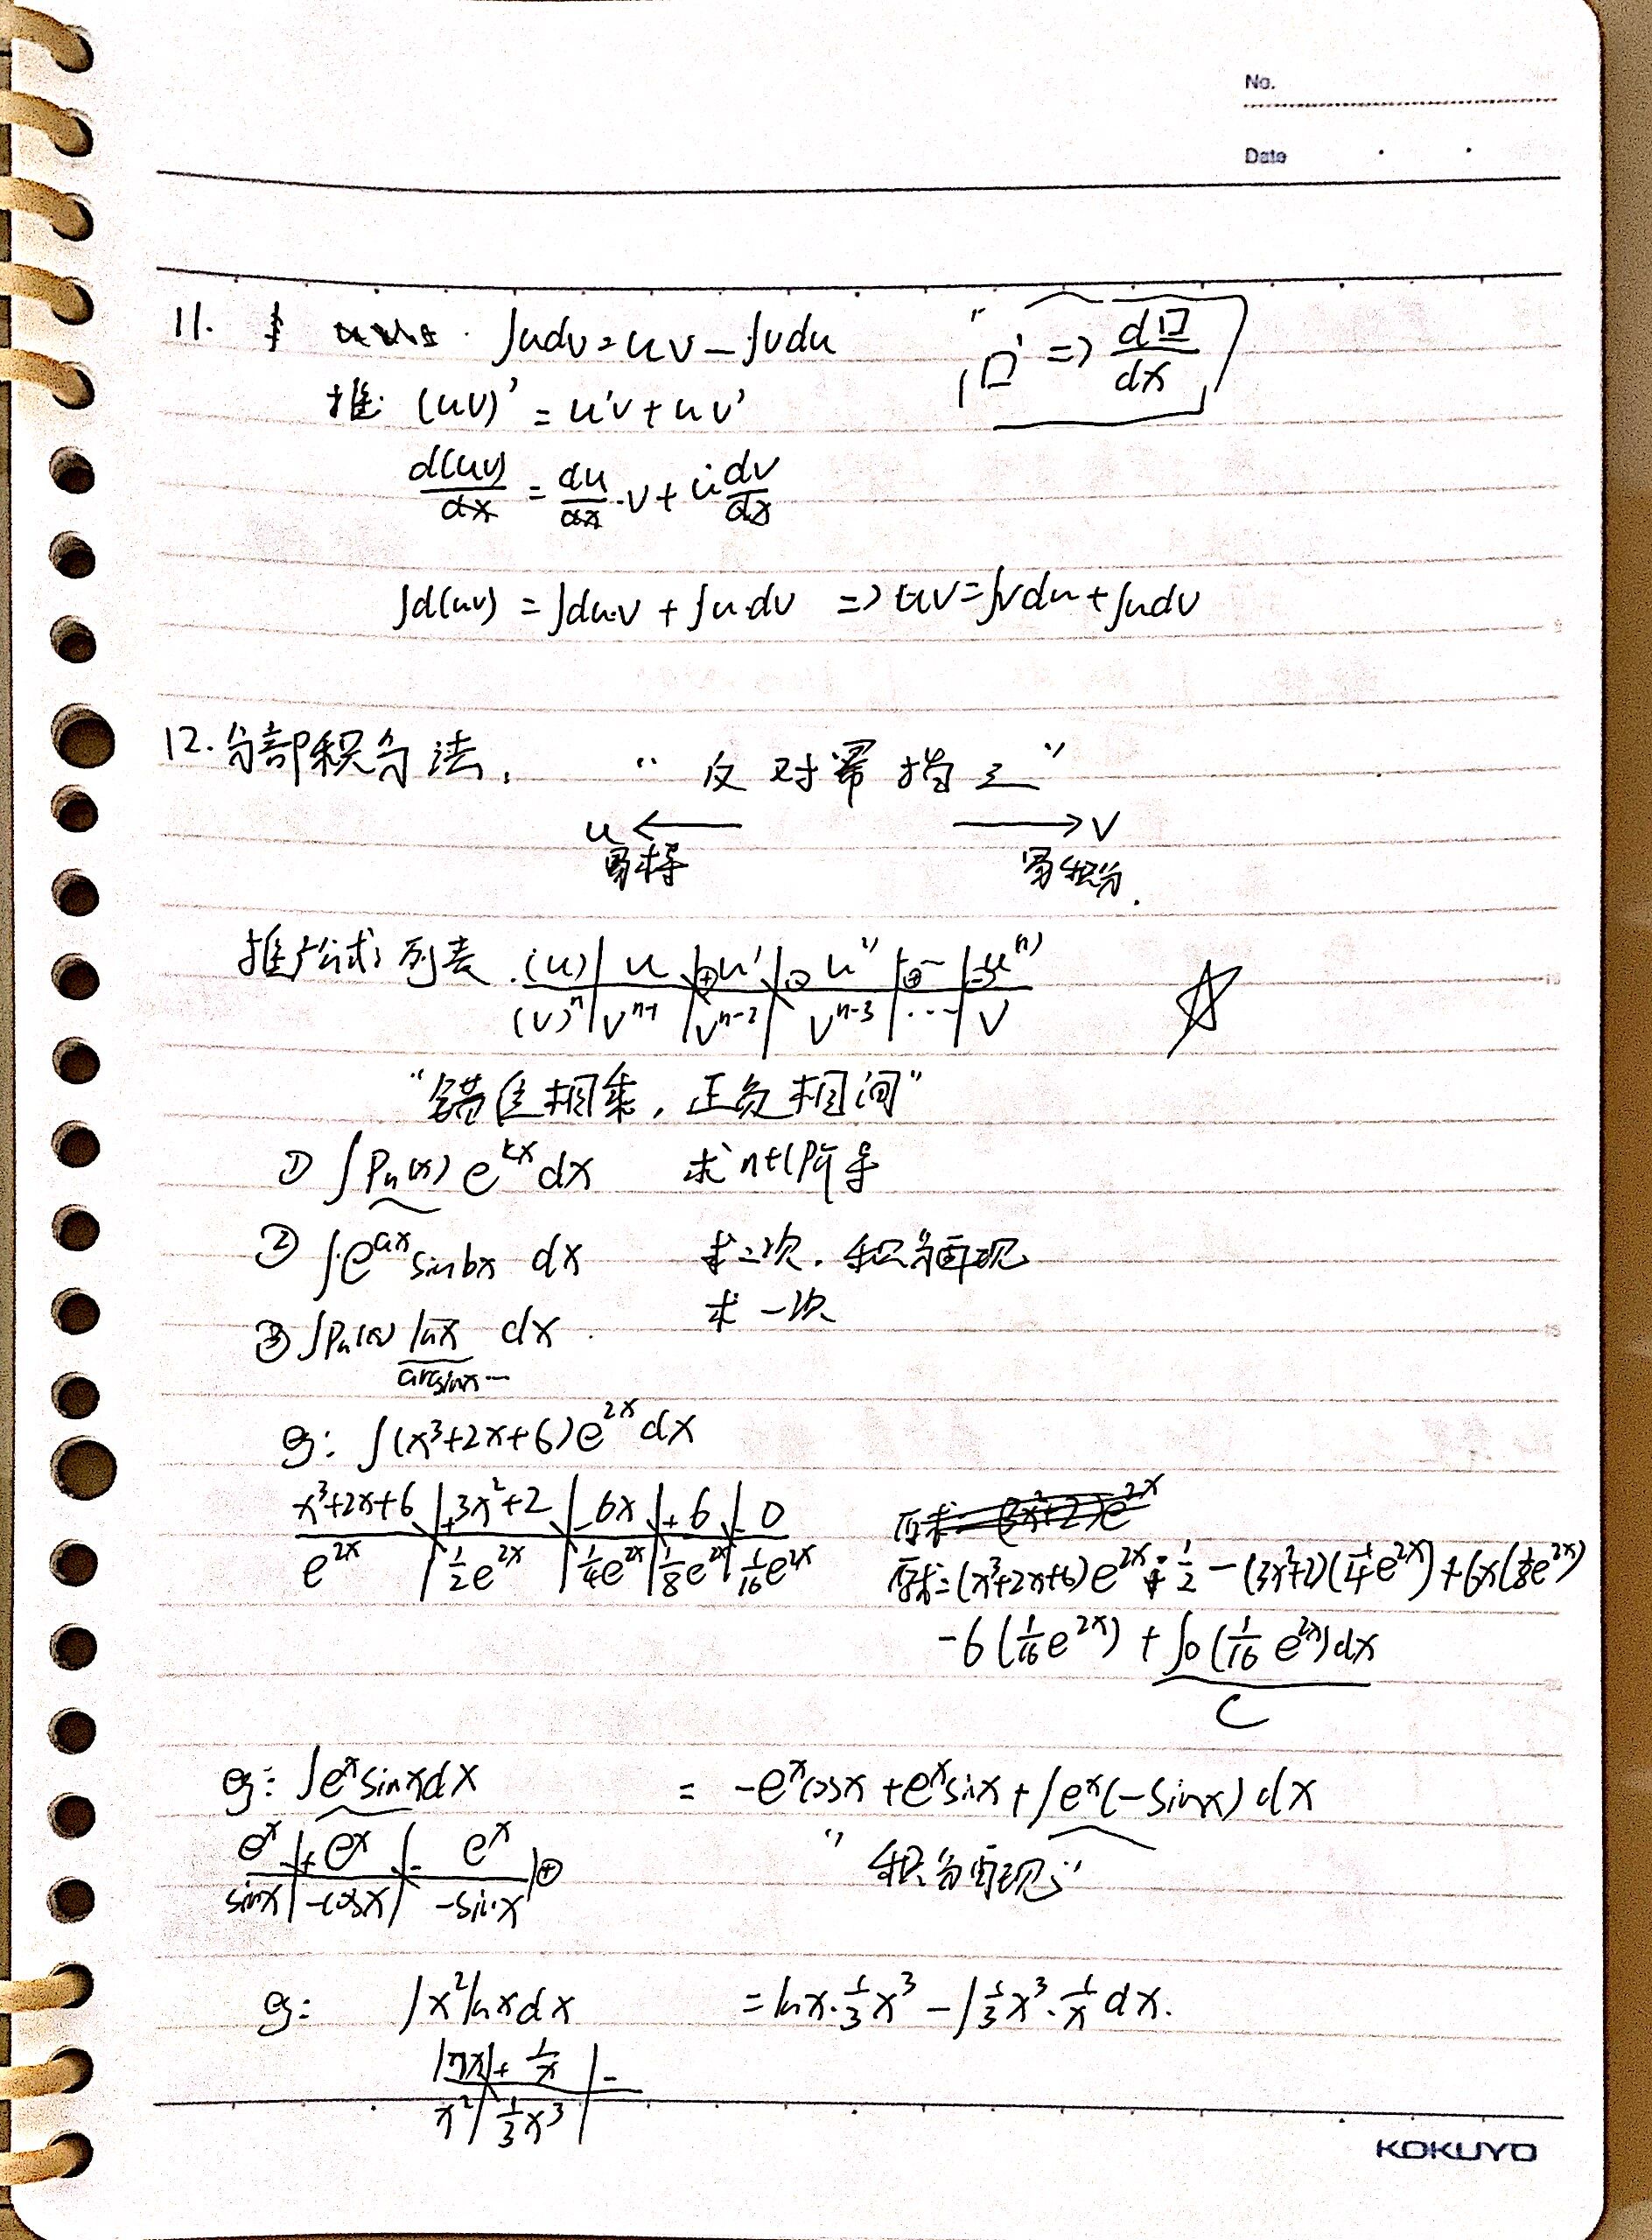 No.
Date
11. ∫udv=uv-∫vdu
"□' => d□/dx
推: (uv)' = u'v+uv'
d(uv)/dx = du/dx·v+u·dv/dx
∫d(uv) = ∫du·v + ∫u·dv => uv=∫vdu+∫udv
12.分部积分法, “反对幂指三”
u ← → v
易求导 易积分.
推广公式: 列表. (u) | u | ⊕ u' | ⊖ u'' | ⊕ … | u⁽ⁿ⁾
(v)ⁿ | vⁿ⁻¹ | vⁿ⁻² | vⁿ⁻³ | … | v
“错位相乘,正负相间”
① ∫Pn(x) e^kx dx 求n+1阶导
② ∫e^ax sinbx dx 求二次. 积分再现
③ ∫Pn(x) lnx dx. 求一次
arcsinx…
eg: ∫(x³+2x+6)e^2x dx
x³+2x+6 | + 3x²+2 | - 6x | + 6 | - 0
e^2x | 1/2 e^2x | 1/4 e^2x | 1/8 e^2x | 1/16 e^2x
原求= (3x²+2)e^2x
原求=(x³+2x+6)e^2x·1/2-(3x²+2)(1/4 e^2x)+6x(1/8 e^2x)
-6(1/16 e^2x)+∫0(1/16 e^2x)dx
C
eg: ∫e^x sinxdx = -e^x cosx+e^x sinx+∫e^x(-sinx)dx
e^x | + e^x | - e^x | ⊕
“积分再现”
sinx | -cosx | -sinx
eg: ∫x²lnxdx =lnx·1/3 x³-∫1/3 x³·1/x dx.
lnx | + 1/x | -
x² | 1/3 x³ |
KOKUYO